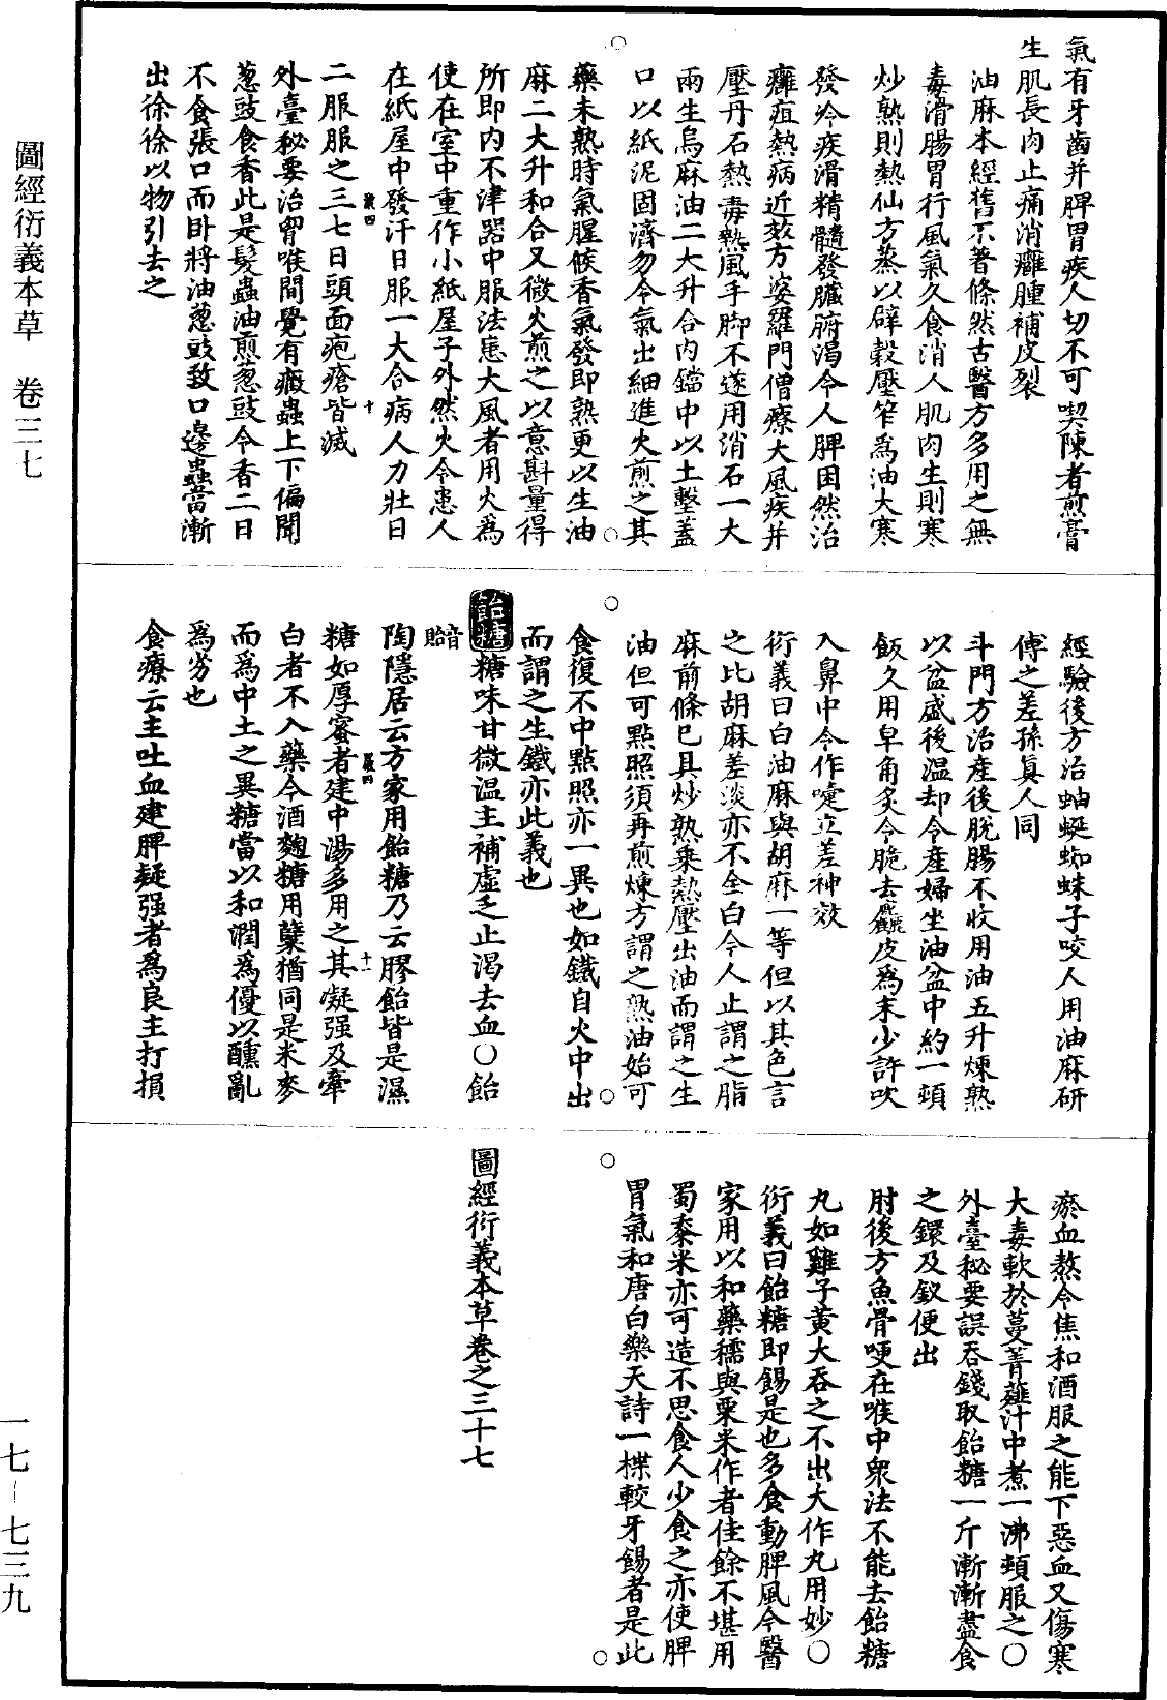 氣有牙齒并脾胃疾人切不可喫陳者煎膏
生肌長肉止痛消癰腫補皮裂
油麻本經舊不著條然古醫方多用之無
毒滑腸胃行風氣久食消人肌肉生則寒
炒熟則熱仙方蒸以辟穀壓笮爲油大寒
發冷疾滑精髓發臟腑渴令人脾困然治
癰疽熱病近效方婆羅門僧療大風疾并
壓丹石熱毒熱風手脚不遂用消石一大
兩生烏麻油二大升合内鐺中以土墼蓋
口以紙泥固濟勿令氣出細進火煎之其
藥未熟時氣腥候香氣發即熟更以生油
麻二大升和合又微火煎之以意斟量得
所即内不津器中服法患大風者用火爲
使在室中重作小紙屋子外然火令患人
在紙屋中發汗日服一大合病人力壯日
二服服之三七日頭面疱瘡皆滅
外臺秘要治胷喉間覺有癥蟲上下偏聞
葱豉食香此是髮蟲油煎葱豉令香二日
不食張口而卧將油葱豉致口邊蟲當漸
出徐徐以物引去之
經驗後方治蚰蜒蜘蛛子咬人用油麻研
傅之差孫眞人同
斗門方治產後脫腸不收用油五升煉熟
以盆盛後温却令產婦坐油盆中約一頓
飯久用皁角炙令脆去麤皮爲末少許吹
入鼻中令作嚏立差神效
衍義曰白油麻與胡麻一等但以其色言
之比胡麻差淡亦不全白今人止謂之脂
麻前條已具炒熟乘熱壓出油而謂之生
油但可點照須再煎煉方謂之熟油始可
食復不中點照亦一異也如鐵自火中出
而謂之生鐵亦此義也
飴糖糖味甘微温主補虛乏止渴去血○飴
音貽
陶隱居云方家用飴糖乃云膠飴皆是濕
糖如厚蜜者建中湯多用之其凝强及牽
白者不入藥今酒麴糖用糵猶同是米麥
而爲中土之異糖當以和潤爲優以醺亂
爲劣也
食療云主吐血建脾凝强者爲良主打損
瘀血熬令焦和酒服之能下惡血又傷寒
大毒軟於蔓菁薤汁中煮一沸頓服之○
外臺秘要誤吞錢取飴糖一斤漸漸盡食
之鐶及釵便出
肘後方魚骨哽在喉中衆法不能去飴糖
丸如雞子黄大吞之不出大作丸用妙○
衍義曰飴糖即餳是也多食動脾風今醫
家用以和藥糯與粟米作者佳餘不堪用
蜀黍米亦可造不思食人少食之亦使脾
胃氣和唐白樂天詩一楪較牙餳者是此
圖經衍義本草卷之三十七
圖經衍義本草　卷三七
一七—七三九